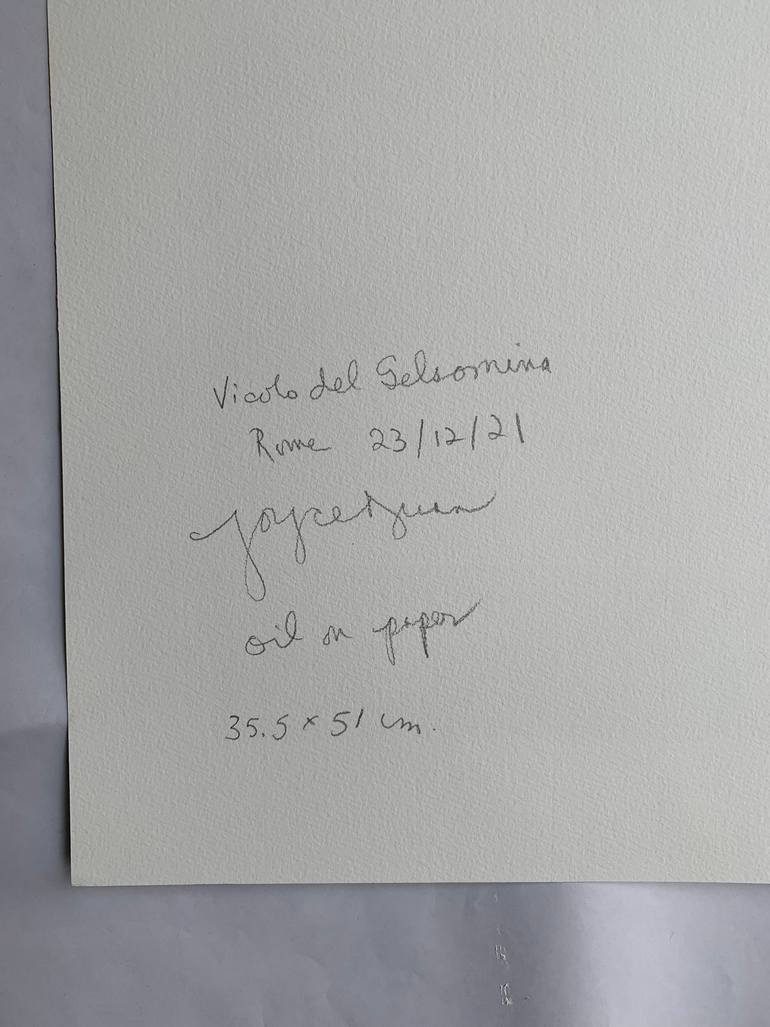 Vicolo del Gelsomina
Rome 23/12/21
oil on paper
35.5 x 51 cm.